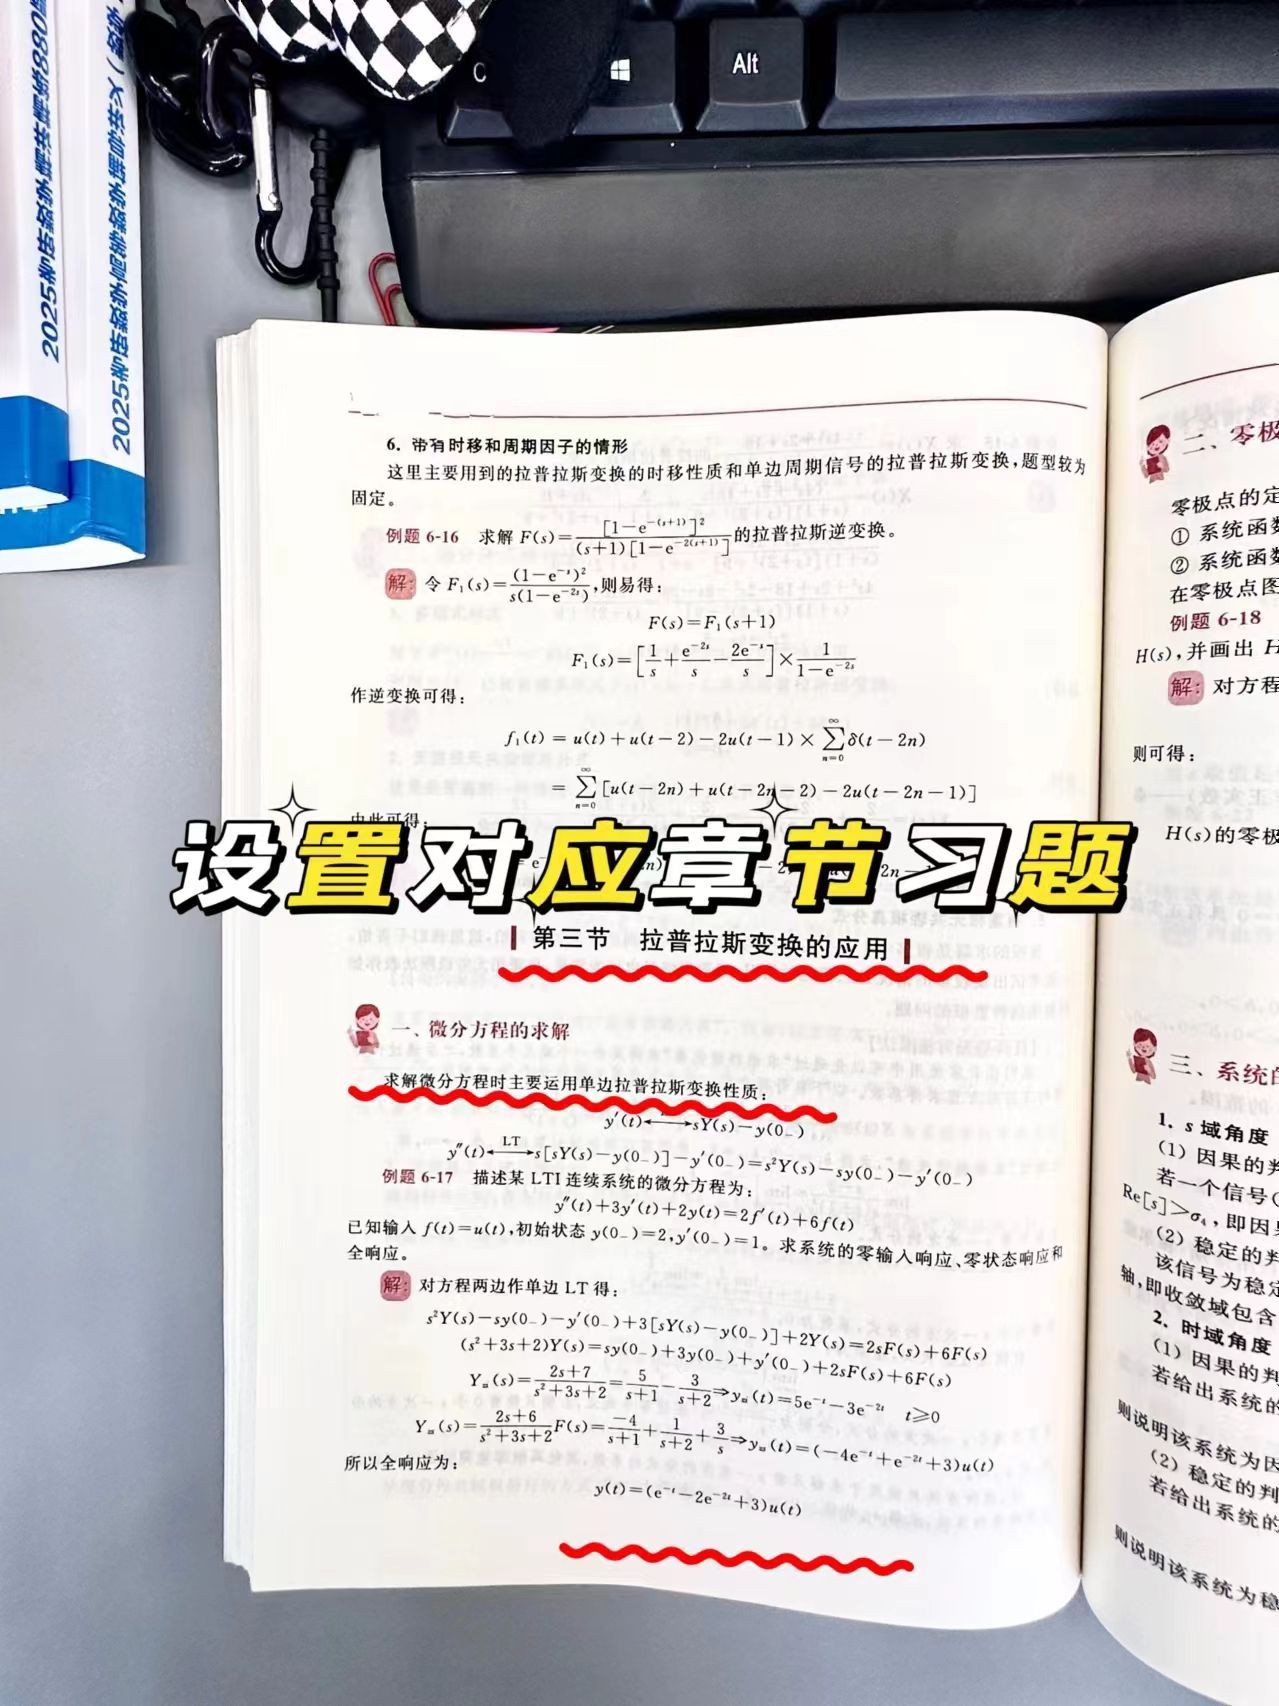 Alt
2025考研数学
2025考研数学
6. 带有时移和周期因子的情形
这里主要用到的拉普拉斯变换的时移性质和单边周期信号的拉普拉斯变换,题型较为
固定。
例题 6-16 求解 F(s)=[1-e^{-(s+1)}]²/((s+1)[1-e^{-2(s+1)}])的拉普拉斯逆变换。
解: 令 F₁(s)=(1-e^{-s})²/(s(1-e^{-2s})),则易得:
F(s)=F₁(s+1)
F₁(s)=[1/s+e^{-2s}/s-2e^{-s}/s]×1/(1-e^{-2s})
作逆变换可得:
f₁(t) = u(t)+u(t-2)-2u(t-1)×∑_{n=0}^{∞}δ(t-2n)
= ∑_{n=0}^{∞}[u(t-2n)+u(t-2n-2)-2u(t-2n-1)]
由此可得:
设置对应章节习题
第三节 拉普拉斯变换的应用
一、微分方程的求解
求解微分方程时主要运用单边拉普拉斯变换性质:
y′(t)⟷sY(s)-y(0₋)
y″(t)⟷LT s[sY(s)-y(0₋)]-y′(0₋)=s²Y(s)-sy(0₋)-y′(0₋)
例题 6-17 描述某 LTI 连续系统的微分方程为:
y″(t)+3y′(t)+2y(t)=2f′(t)+6f(t)
已知输入 f(t)=u(t),初始状态 y(0₋)=2,y′(0₋)=1。求系统的零输入响应、零状态响应和
全响应。
解: 对方程两边作单边 LT 得:
s²Y(s)-sy(0₋)-y′(0₋)+3[sY(s)-y(0₋)]+2Y(s)=2sF(s)+6F(s)
(s²+3s+2)Y(s)=sy(0₋)+3y(0₋)+y′(0₋)+2sF(s)+6F(s)
Y(s)=(2s+7)/(s²+3s+2)=5/(s+1)-3/(s+2)⇒y(t)=5e^{-t}-3e^{-2t} t≥0
Y(s)=(2s+6)/(s²+3s+2)F(s)=-4/(s+1)+1/(s+2)+3/s⇒y(t)=(-4e^{-t}+e^{-2t}+3)u(t)
所以全响应为:
y(t)=(e^{-t}-2e^{-2t}+3)u(t)
二、零极
零极点的定
① 系统函数
② 系统函数
在零极点图
例题 6-18
H(s),并画出 H
解: 对方程
则可得:
H(s)的零极
三、系统的
1. s 域角度
(1) 因果的判
若一个信号(
Re[s]>σ,即因果
(2) 稳定的判
该信号为稳定
轴,即收敛域包含
2. 时域角度
(1) 因果的判
若给出系统的
则说明该系统为因
(2) 稳定的判
若给出系统的
则说明该系统为稳